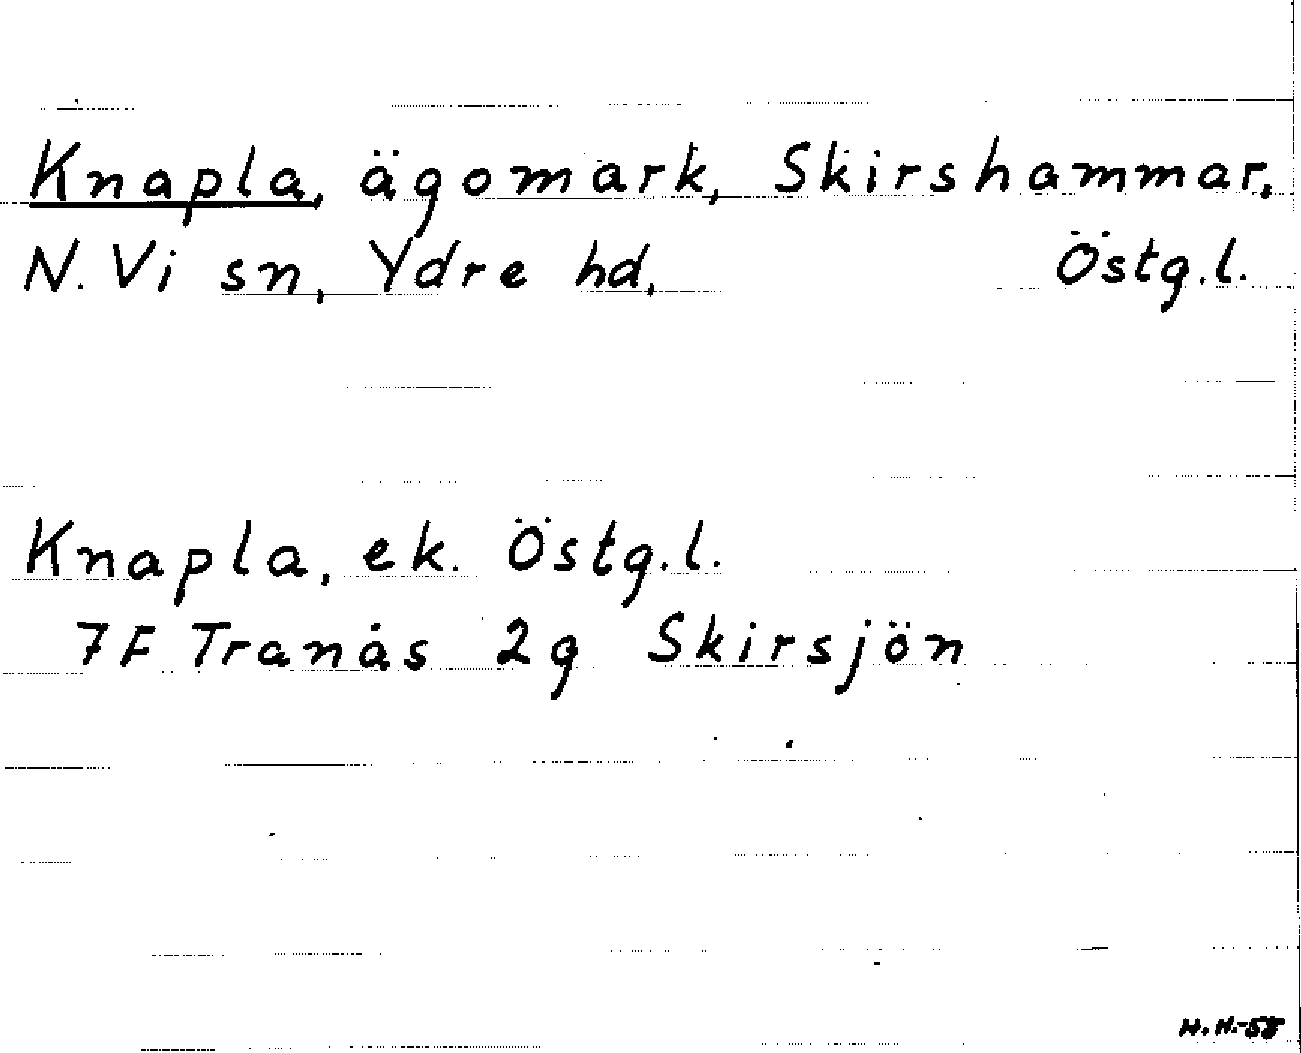 Knapla, ägomark, Skirshammar,
N. Vi sn, Ydre hd, Östg.l.
Knapla, ek. Östg.l.
7F Tranås 2g Skirsjön
H.H.-58